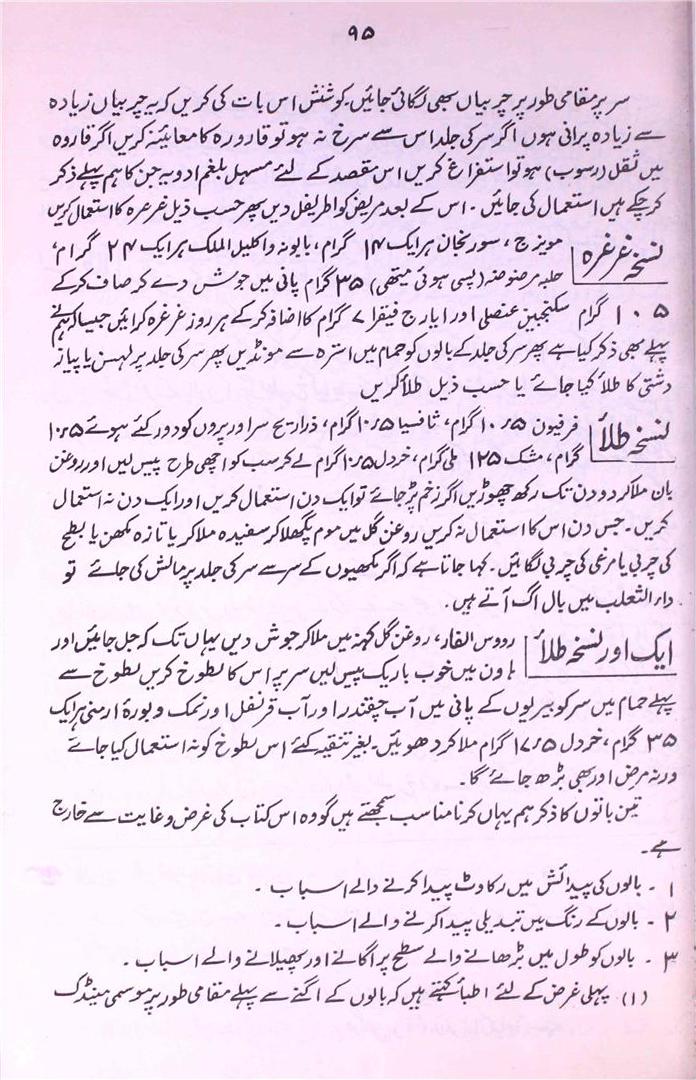 ۹۵
سر پر مقامی طور پر چربیاں بھی لگائی جائیں۔ کوشش اس بات کی کریں کہ یہ چربیاں زیادہ
سے زیادہ پرانی ہوں اگر سر کی جلد اس سے سرخ نہ ہو تو قارورہ کا معائنہ کریں اگر قاروہ
میں ثقل (رسوب) ہو تو استفراغ کریں اس مقصد کے لئے مسہل بلغم ادویہ جن کا ہم پہلے ذکر
کر چکے ہیں استعمال کی جائیں۔ اس کے بعد مریض کو اطریفل دیں پھر حسب ذیل غرغرہ کا استعمال کریں
نسخہ غرغرہ مویزج، سورنجان ہر ایک ۱۴ گرام، بابونہ و اکلیل الملک ہر ایک ۲۴ گرام،
حلبہ مرضوضہ (پسی ہوئی میتھی) ۳۵ گرام پانی میں جوش دے کر صاف کر کے
۱۰۵ گرام سکنجبین عنصلی اور ایارج فیقرا ۷ گرام کا اضافہ کر کے ہر روز غرغرہ کرائیں جیسا کہ ہم نے
پہلے بھی ذکر کیا ہے پھر سر کی جلد کے بالوں کو حمام میں استرہ سے مونڈیں پھر سر کی جلد پر لہسن یا پیاز
دشتی کا طلأ کیا جائے یا حسب ذیل طلأ کریں
نسخہ طلأ فرفیون ۱۰٫۵ گرام، ثافسیا ۱۰٫۵ گرام، ذراریح سر اور پروں کو دور کئے ہوئے ۱۰٫۵
گرام، مشک ۱۲۵ ملی گرام، خردل ۱۰٫۵ گرام لے کر سب کو اچھی طرح پیس لیں اور روغن
بان ملا کر دو دن تک رکھ چھوڑیں اگر زخم پڑ جائے تو ایک دن استعمال کریں اور ایک دن نہ استعمال
کریں۔ جس دن اس کا استعمال نہ کریں روغن گل میں موم پگھلا کر سفیدہ ملا کر یا تازہ مکھن یا بطخ
کی چربی یا مرغی کی چربی لگائیں۔ کہا جاتا ہے کہ اگر مکھیوں کے سر سے سر کی جلد پر مالش کی جائے تو
داء الثعلب میں بال اگ آتے ہیں۔
ایک اور نسخہ طلأ رووس الفار، روغن گل کہنہ میں ملا کر جوش دیں یہاں تک کہ جل جائیں اور
ہاون میں خوب باریک پیس لیں سر پر اس کا لطوخ کریں لطوخ سے
پہلے حمام میں سر کو بیریوں کے پانی میں آب چقندر اور آب قرنفل اور نمک و بورۂ ارمنی ہر ایک
۳۵ گرام، خردل ۱۷٫۵ گرام ملا کر دھوئیں۔ بغیر تنقیہ کئے اس لطوخ کو نہ استعمال کیا جائے
ورنہ مرض اور بھی بڑھ جائے گا۔
تین باتوں کا ذکر ہم یہاں کرنا مناسب سمجھتے ہیں گو وہ اس کتاب کی غرض و غایت سے خارج
ہے۔
۱۔ بالوں کی پیدائش میں رکاوٹ پیدا کرنے والے اسباب۔
۲۔ بالوں کے رنگ میں تبدیلی پیدا کرنے والے اسباب۔
۳۔ بالوں کو طول میں بڑھانے والے سطح پر اگانے اور پھیلانے والے اسباب۔
(۱) پہلی غرض کے لئے اطبأ کہتے ہیں کہ بالوں کے اگنے سے پہلے مقامی طور پر موسمی مینڈک